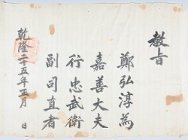 教旨
鄭弘淳為
嘉善大夫
行忠武衛
副司直者
乾隆二十五年五月 日